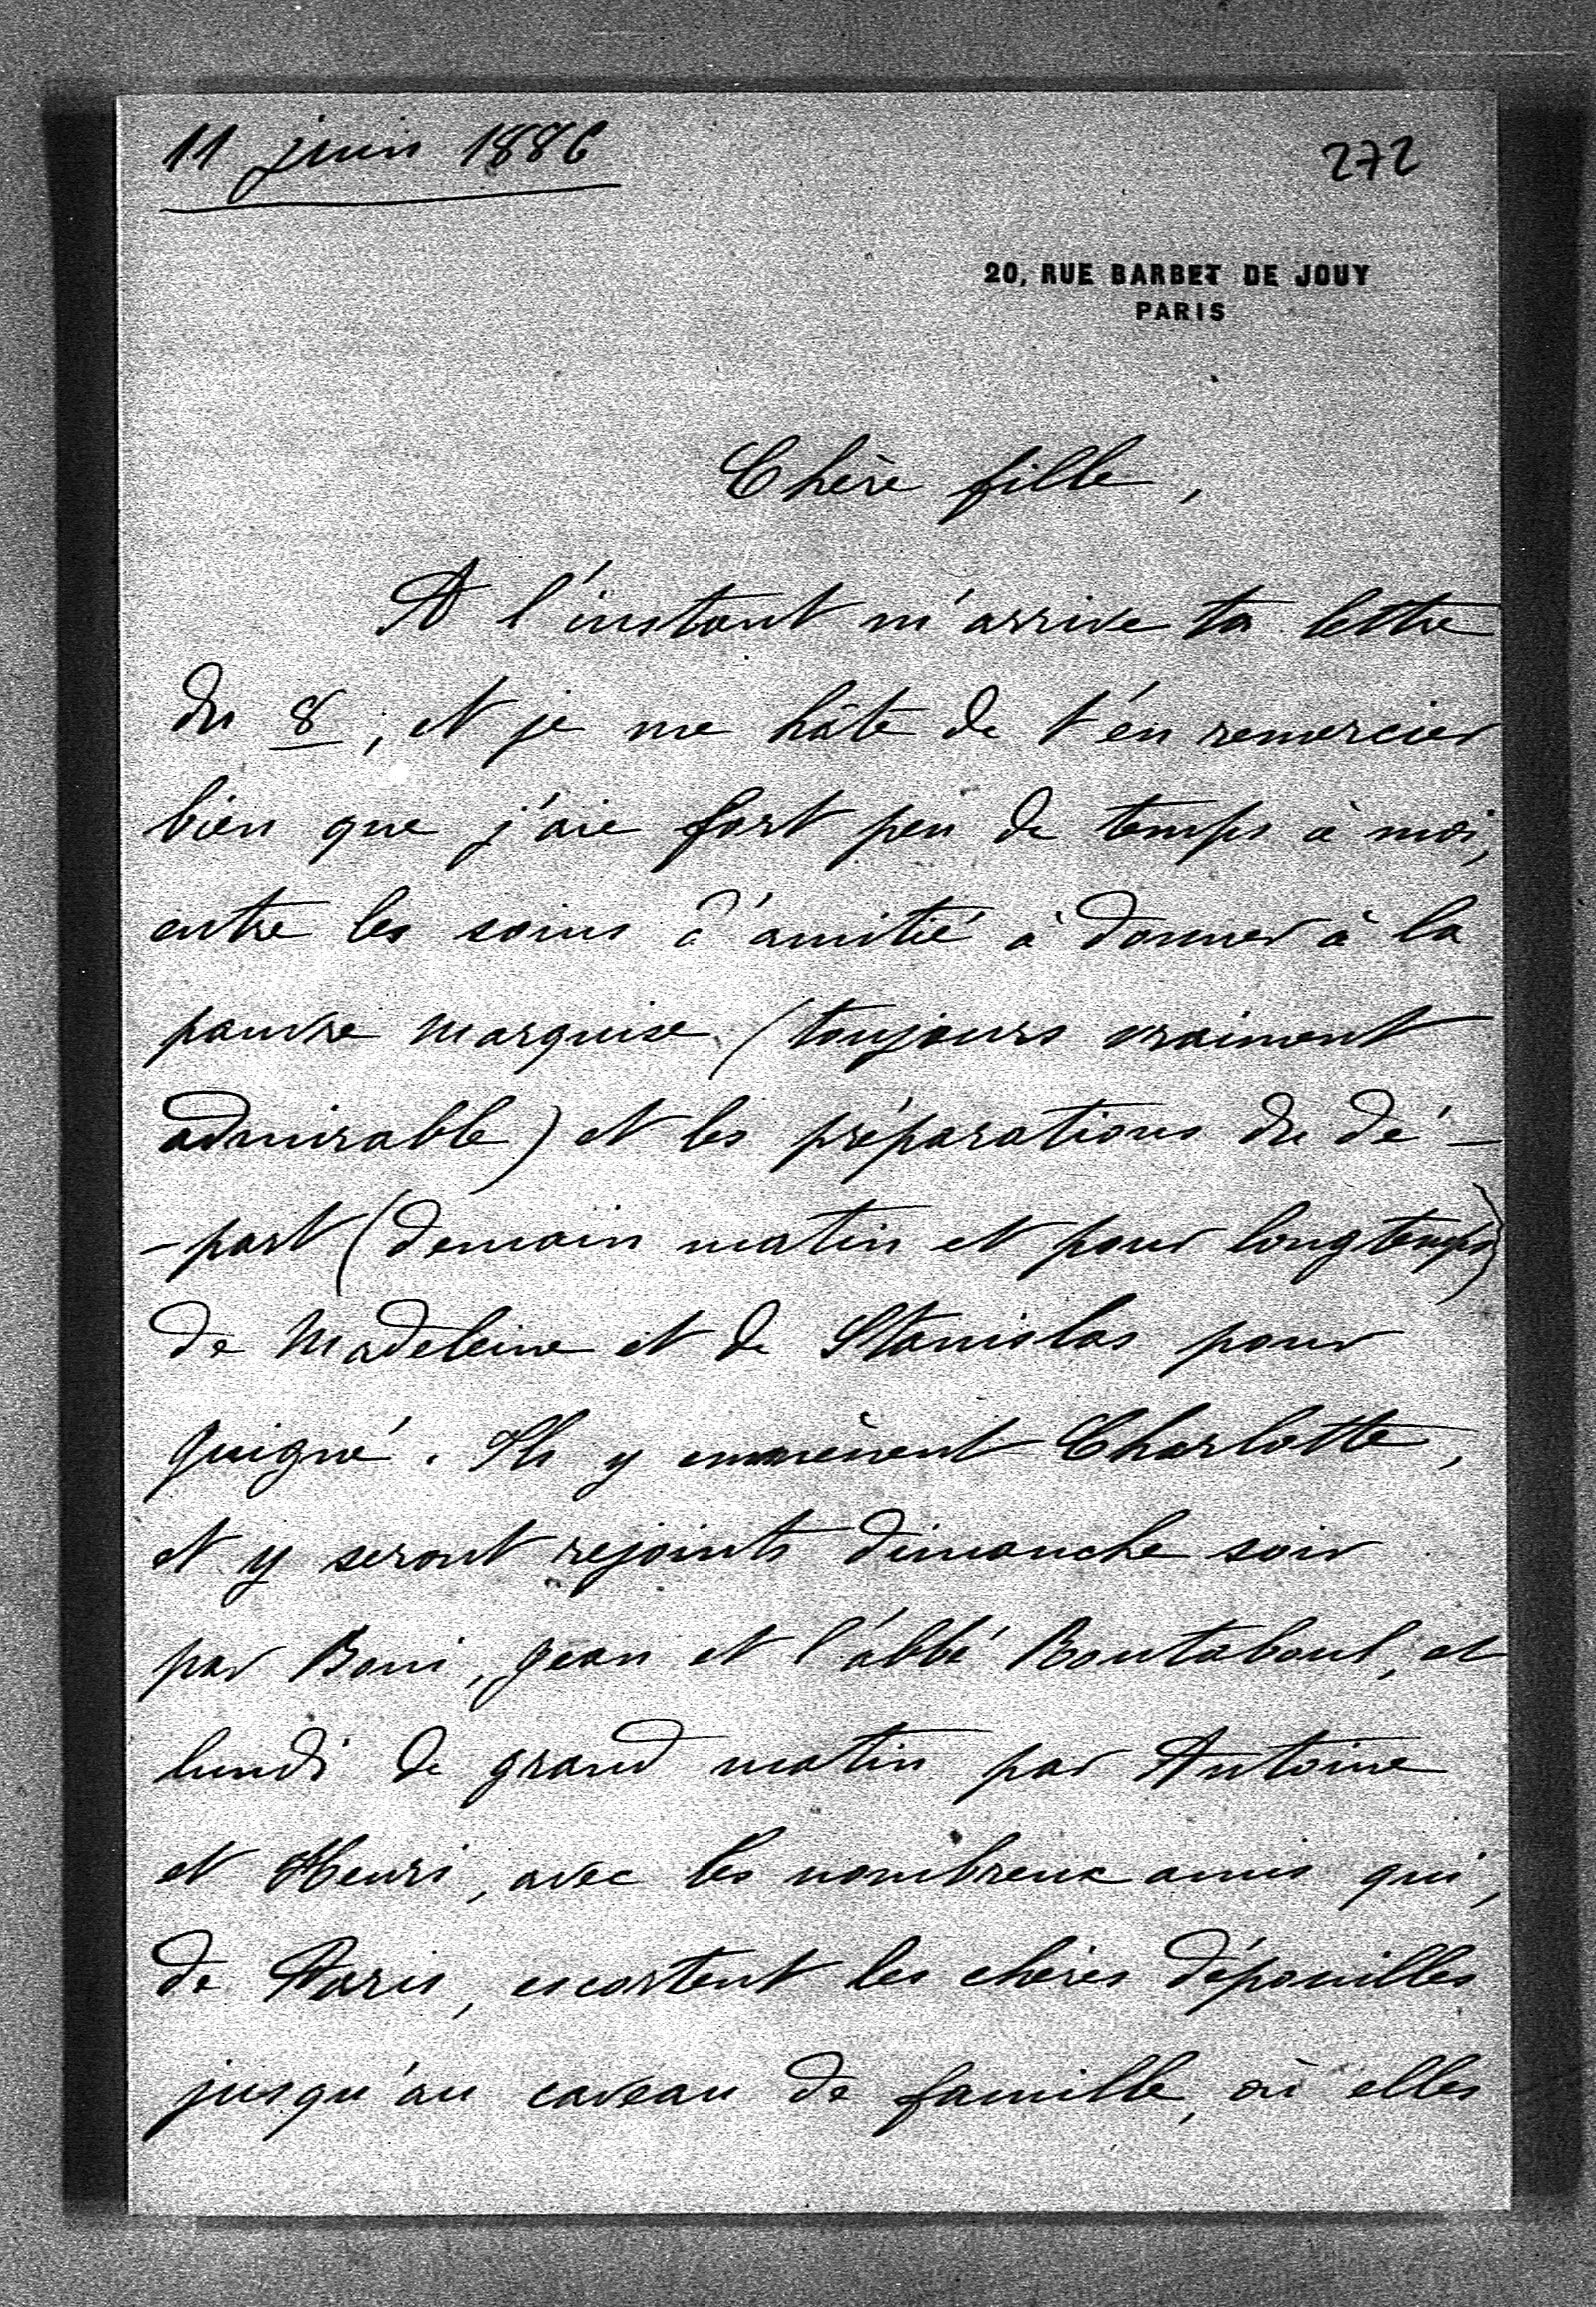 11 juin 1886
272
20, RUE BARBET DE JOUY
PARIS
Chère fille,
A l'instant m'arrive ta lettre
du 8, et je me hâte de t'en remercier
bien que j'aie fort peu de temps à moi,
entre les soins d'amitié à donner à la
pauvre marquise (toujours vraiment
admirable) et les préparations du dé-
-part (demain matin et pour longtemps)
de Madeleine et de Stanislas pour
Juigné. Ils y emmènent Charlotte,
et y seront rejoints dimanche soir
par Boni, Jean et l'abbé Boutaboul, et
lundi de grand matin par Antoine
et Henri, avec les nombreux amis qui,
de Paris, escortent les chères dépouilles
jusqu'au caveau de famille, où elles